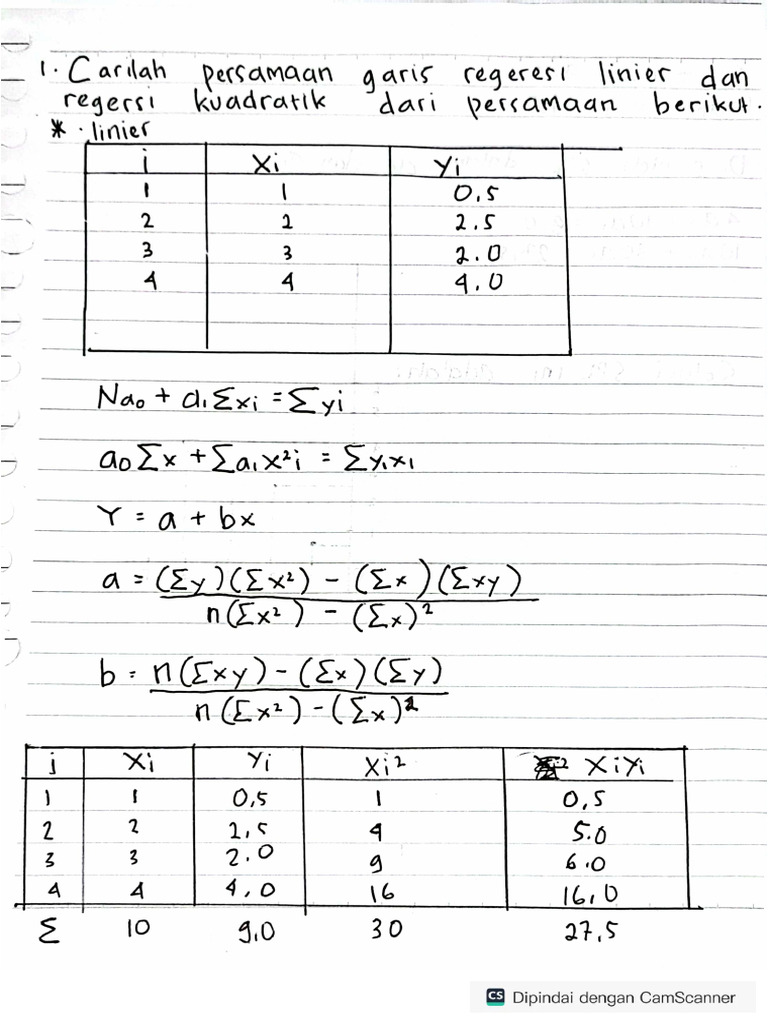 1. Carilah persamaan garis regeresi linier dan
regersi kuadratik dari persamaan berikut.
* . linier
i Xi Yi
1 1 0.5
2 2 2.5
3 3 2.0
4 4 4.0
Na₀ + a₁ Σxi = Σyi
a₀ Σx + Σa₁x²i = Σy₁x₁
Y = a + bx
a = (Σy)(Σx²) - (Σx)(Σxy)
n(Σx²) - (Σx)²
b = n(Σxy) - (Σx)(Σy)
n(Σx²) - (Σx)²
i Xi Yi Xi² XiYi
1 1 0,5 1 0,5
2 2 2,5 4 5.0
3 3 2.0 9 6.0
4 4 4,0 16 16,0
Σ 10 9,0 30 27,5
CS Dipindai dengan CamScanner